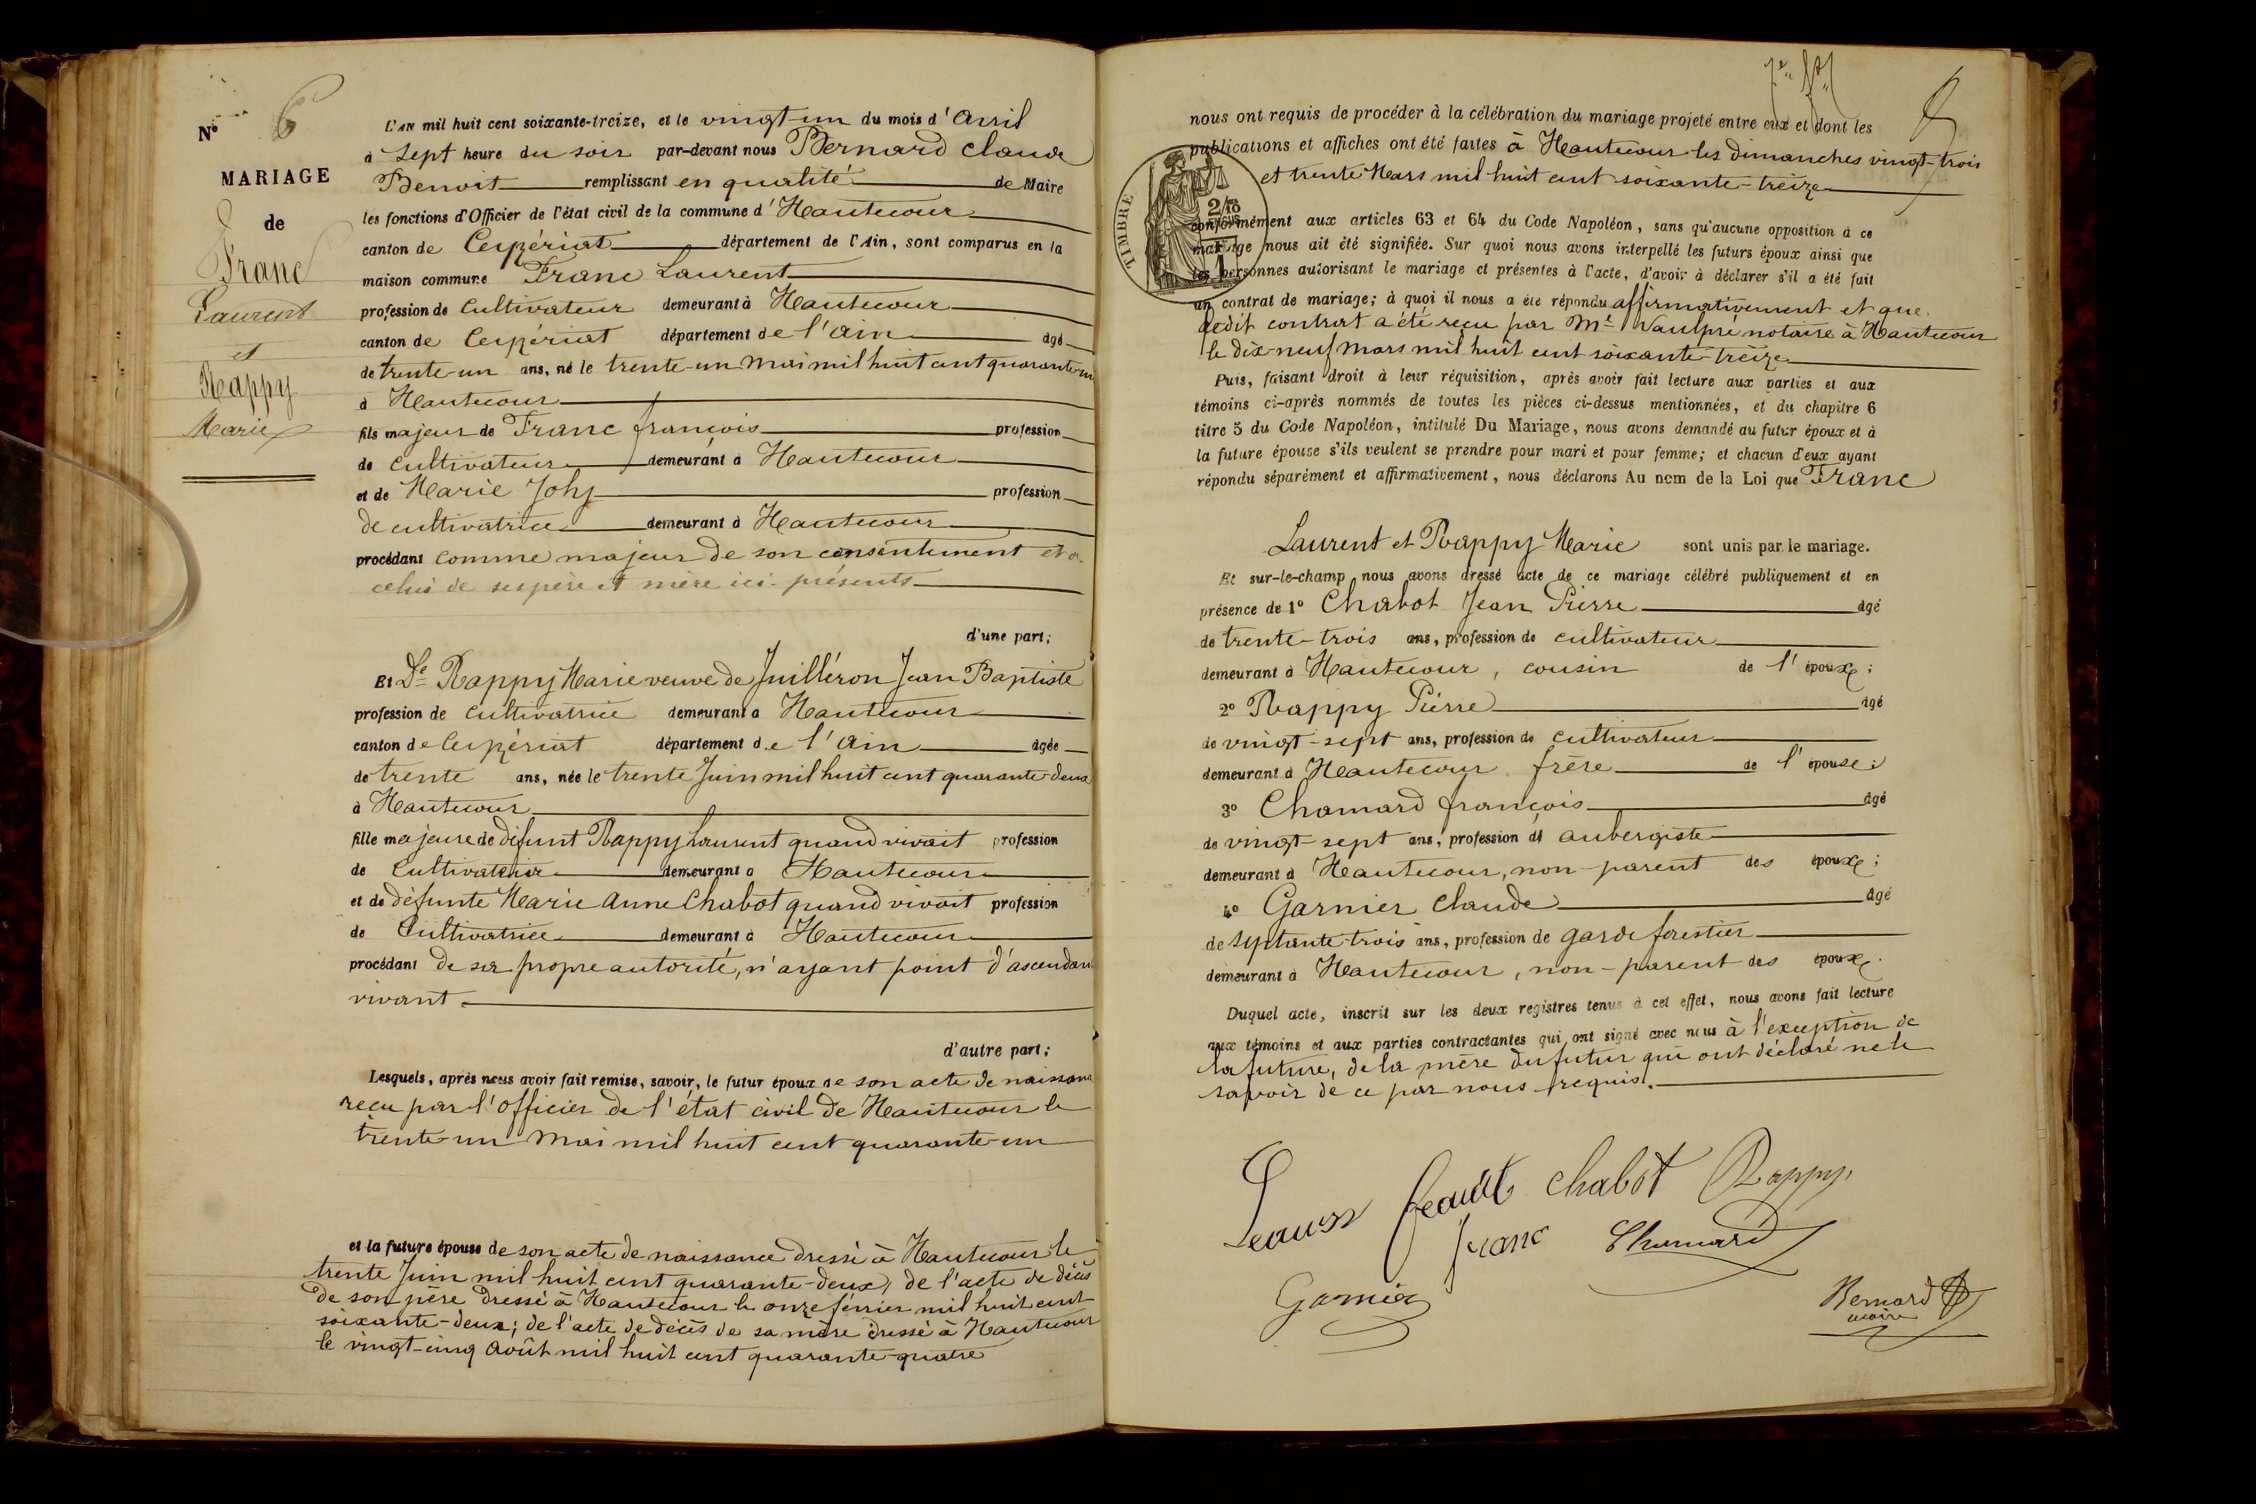 N° 6
MARIAGE
de
Franc
Laurent
et
Rappy
Marie
L'AN mil huit cent soixante-treize, et le vingt-un du mois d'avril
à sept heure du soir par-devant nous Bernard Claude
Benoit remplissant en qualité de Maire
les fonctions d'Officier de l'état civil de la commune d'Hautecour
canton de Ceyzériat département de l'Ain, sont comparus en la
maison commune Franc Laurent
profession de cultivateur demeurant à Hautecour
canton de Ceyzériat département de l'ain âgé
de trente-un ans, né le trente-un Mai mil huit cent quarante-un
à Hautecour
fils majeur de Franc françois profession
de cultivateur demeurant à Hautecour
et de Marie Joly profession
de cultivatrice demeurant à Hautecour
procédant comme majeur de son consentement et a
celui de ses père et mère ici présents
d'une part;
Et De Rappy Marie veuve de Juilléron Jean Baptiste
profession de cultivatrice demeurant à Hautecour
canton de Ceyzériat département de l'ain âgée
de trente ans, née le trente Juin mil huit cent quarante-deux
à Hautecour
fille majeure de défunt Rappy Laurent quand vivait profession
de Cultivateur demeurant à Hautecour
et de défunte Marie Anne Chabot quand vivait profession
de Cultivatrice demeurant à Hautecour
procédant de sa propre autorité, n'ayant point d'ascendant
vivant
d'autre part;
Lesquels, après nous avoir fait remise, savoir, le futur époux de son acte de naissance
reçu par l'officier de l'état civil de Hautecour le
trente-un mai mil huit cent quarante-un
et la future épouse de son acte de naissance dressé à Hautecour le
trente Juin mil huit cent quarante-deux, de l'acte de décès
de son père dressé à Hautecour le onze février mil huit cent
soixante-deux; de l'acte de décès de sa mère dressé à Hautecour
le vingt-cinq Août mil huit cent quarante-quatre
nous ont requis de procéder à la célébration du mariage projeté entre eux et dont les
publications et affiches ont été faites à Hautecour les dimanches vingt-trois
et trente Mars mil huit cent soixante-treize
TIMBRE
conformément aux articles 63 et 64 du Code Napoléon, sans qu'aucune opposition à ce
mariage nous ait été signifiée. Sur quoi nous avons interpellé les futurs époux ainsi que
les personnes autorisant le mariage et présentes à l'acte, d'avoir à déclarer s'il a été fait
un contrat de mariage; à quoi il nous a été répondu affirmativement et que
ledit contrat a été reçu par Me Vaulpré notaire à Hautecour
le dix-neuf Mars mil huit cent soixante-treize
Puis, faisant droit à leur réquisition, après avoir fait lecture aux parties et aux
témoins ci-après nommés de toutes les pièces ci-dessus mentionnées, et du chapitre 6
titre 5 du Code Napoléon, intitulé Du Mariage, nous avons demandé au futur époux et à
la future épouse s'ils veulent se prendre pour mari et pour femme; et chacun d'eux ayant
répondu séparément et affirmativement, nous déclarons Au nom de la Loi que Franc
Laurent et Rappy Marie sont unis par le mariage.
Et sur-le-champ nous avons dressé acte de ce mariage célébré publiquement et en
présence de 1° Chabot Jean Pierre âgé
de trente-trois ans, profession de cultivateur
demeurant à Hautecour, cousin de l'époux;
2° Rappy Pierre âgé
de vingt-sept ans, profession de cultivateur
demeurant à Hautecour frère de l'épouse;
3° Chamard françois âgé
de vingt-sept ans, profession d'aubergiste
demeurant à Hautecour, non-parent des époux;
4° Garnier Claude âgé
de septante-trois ans, profession de garde forestier
demeurant à Hautecour, non-parent des époux.
Duquel acte, inscrit sur les deux registres tenus à cet effet, nous avons fait lecture
aux témoins et aux parties contractantes qui ont signé avec nous à l'exception de
la future, de la mère du futur qui ont déclaré ne le
savoir de ce par nous requis.
chabot Rappy
franc Chamard
Garnier
Bernard
maire